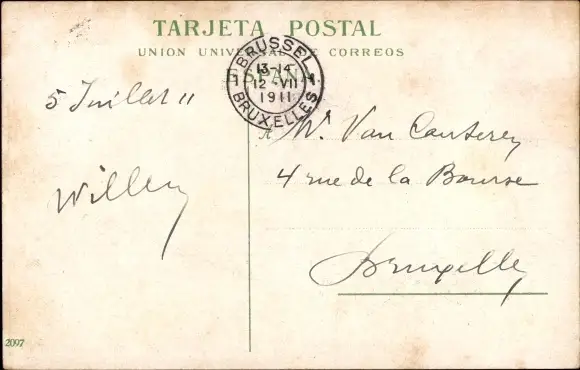 TARJETA POSTAL
UNION UNIVERSAL DE CORREOS
ESPAÑA
BRUSSEL
1 13-14 1
12 -VII
1911
BRUXELLES
5 Juillet 11
Willem
A Mr Van Cauteren
4 rue de la Bourse
Bruxelles
2097